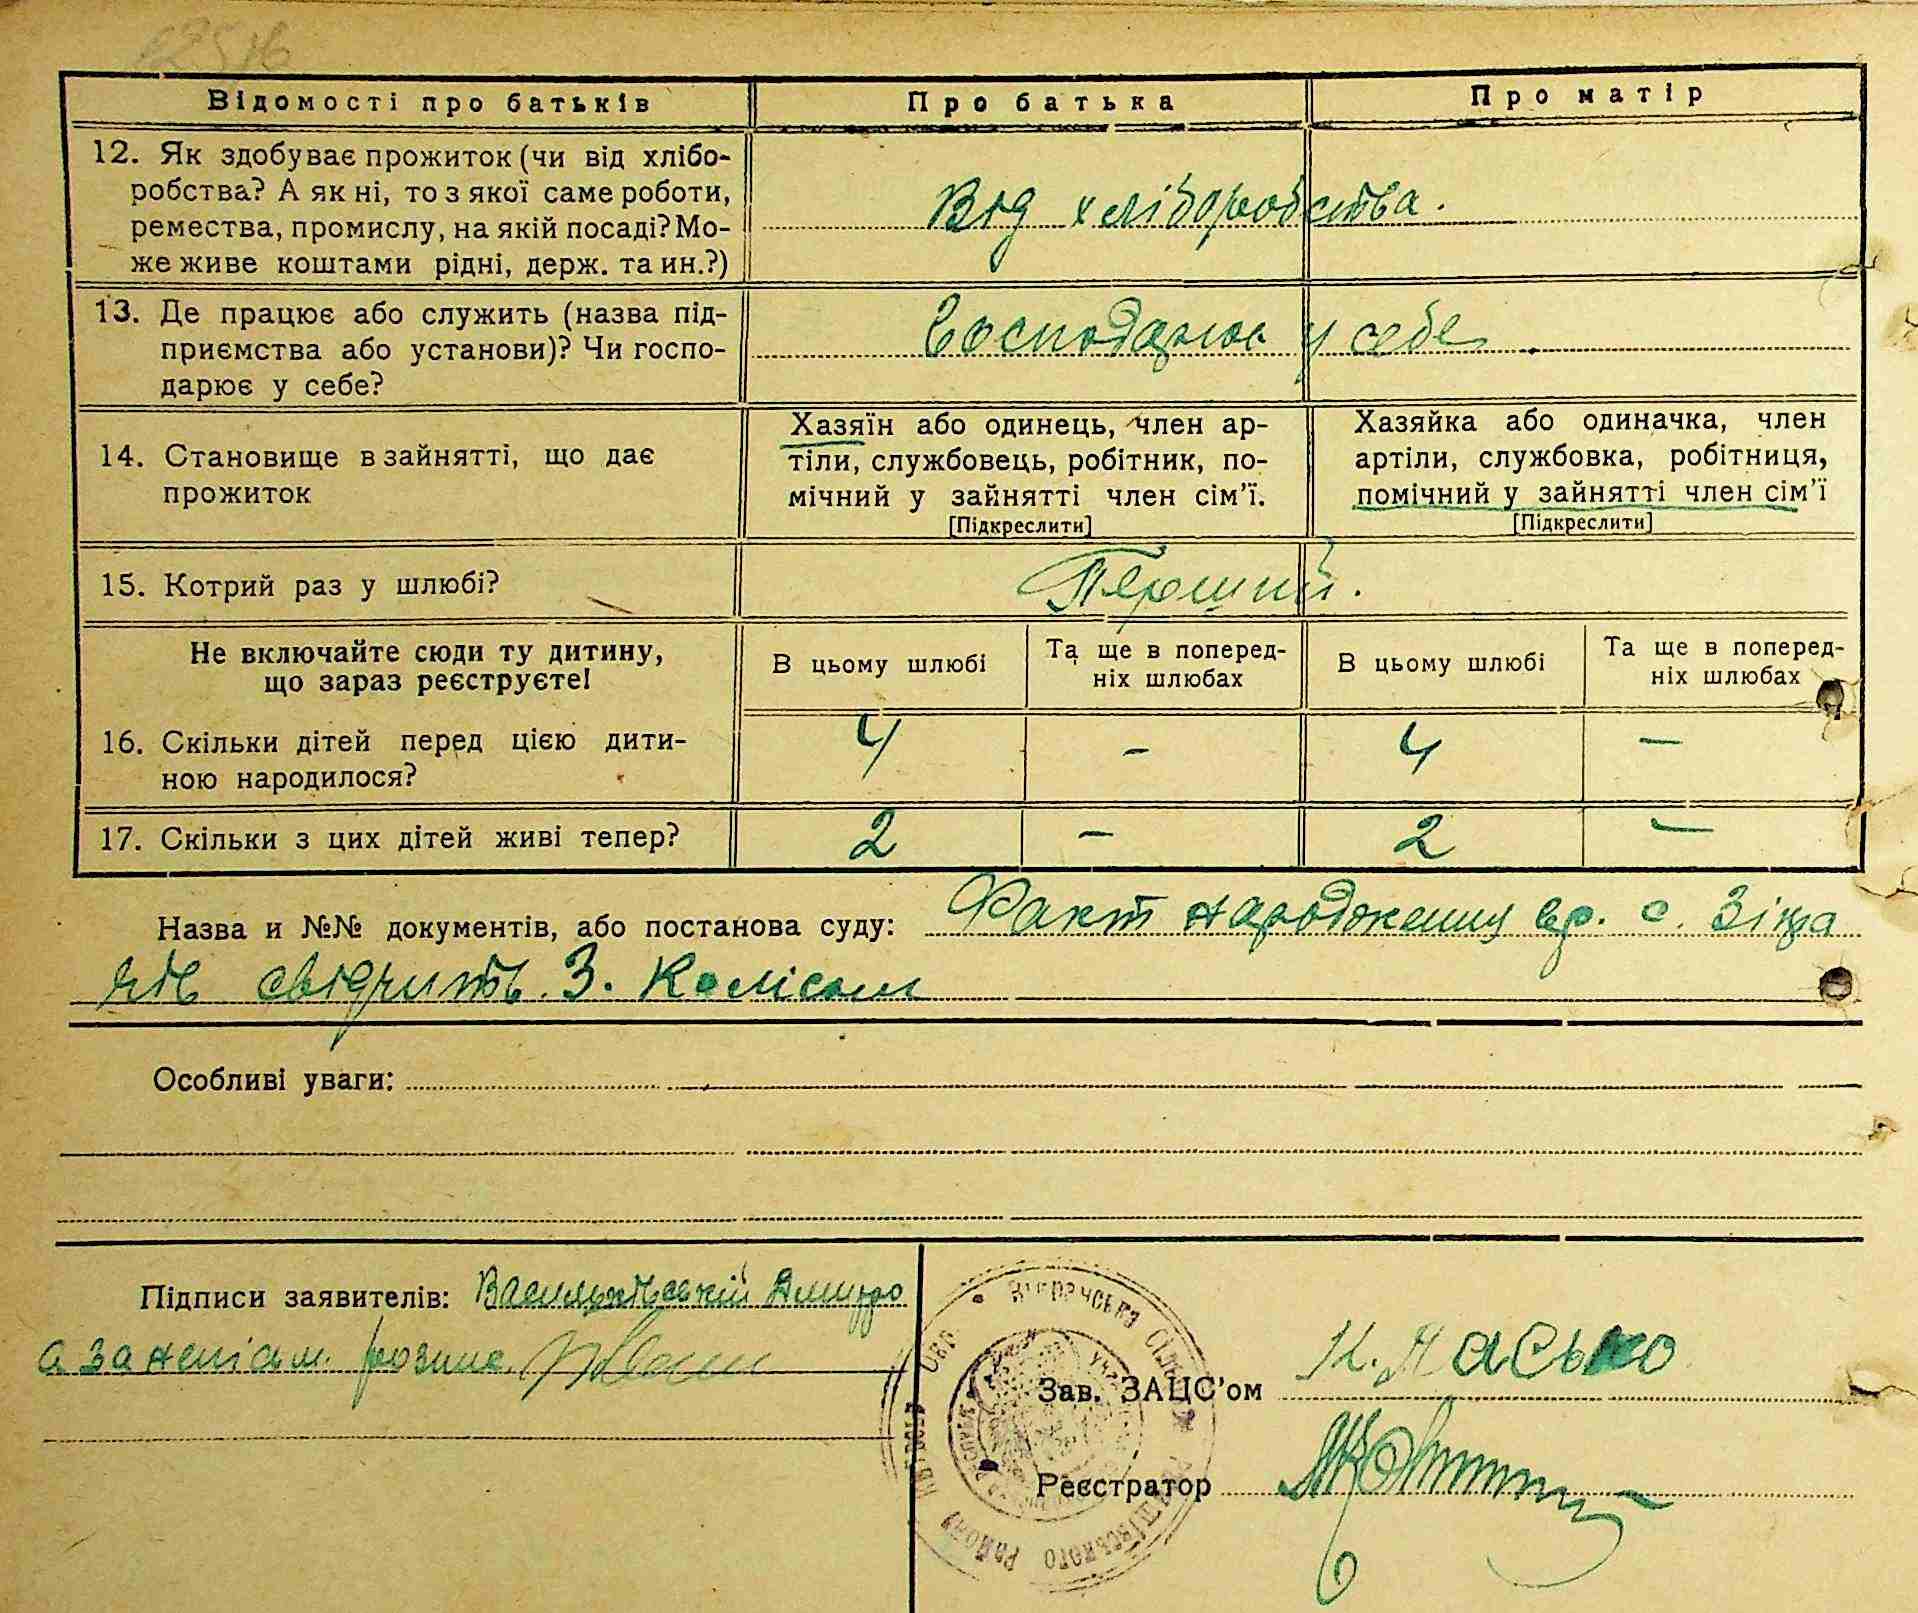 Відомості про батьків Про батька Про матір
12. Як здобуває прожиток (чи від хлібо-
робства? А як ні, то з якої саме роботи,
ремества, промислу, на якій посаді? Мо-
же живе коштами рідні, держ. та ин.?)
Від хліборобства.
13. Де працює або служить (назва під-
приємства або установи)? Чи госпо-
дарює у себе?
Господарює у себе
14. Становище в зайнятті, що дає
прожиток
Хазяїн або одинець, член ар-
тіли, службовець, робітник, по-
мічний у зайнятті член сім'ї.
[Підкреслити]
Хазяйка або одиначка, член
артіли, службовка, робітниця,
помічний у зайнятті член сім'ї
[Підкреслити]
15. Котрий раз у шлюбі? Перший.
Не включайте сюди ту дитину,
що зараз реєструєте!
В цьому шлюбі
Та ще в поперед-
ніх шлюбах
В цьому шлюбі
Та ще в поперед-
ніх шлюбах
16. Скільки дітей перед цією дити-
ною народилося?
4 - 4 -
17. Скільки з цих дітей живі тепер? 2 - 2 -
Назва и №№ документів, або постанова суду: Факт народження гр. с.
свідчить З.
Особливі уваги:
Підписи заявителів: Васильківській Дмитро
Зав. ЗАЦС'ом К. Масько
Реєстратор